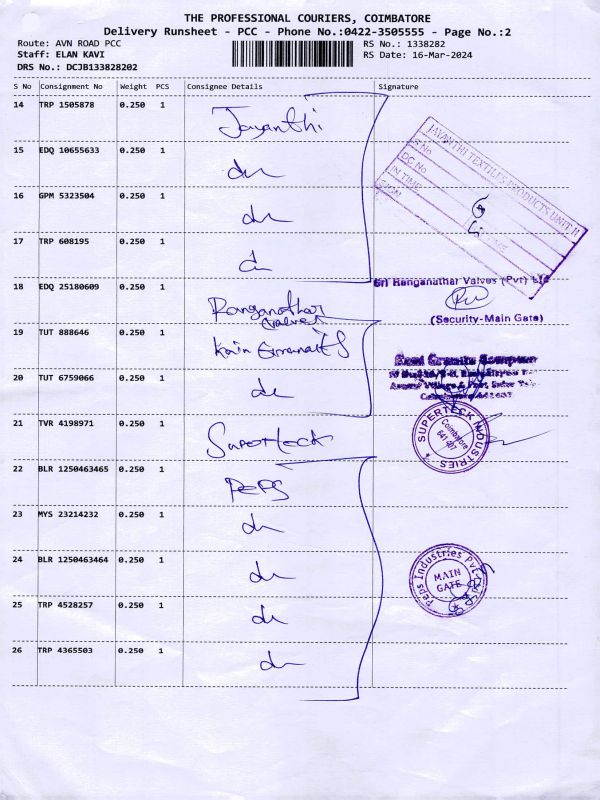 THE PROFESSIONAL COURIERS, COIMBATORE
Delivery Runsheet - PCC - Phone No.:0422-3505555 - Page No.:2
Route: AVN ROAD PCC
RS No.: 1338282
Staff: ELAN KAVI
RS Date: 16-Mar-2024
DRS No.: DCJB133828202
S No Consignment No Weight PCS Consignee Details Signature
14 TRP 1505878 0.250 1 Jayanthi
JAYANTHI TEXTILES PRODUCTS UNIT-II
S No
DC No
IN TIME
SIGN
15 EDQ 10655633 0.250 1 do
16 GPM 5323504 0.250 1 do
17 TRP 608195 0.250 1 do
18 EDQ 25180609 0.250 1 Ranganathar Valves
Sri Ranganathar Valves (Pvt) Ltd
(Security-Main Gate)
19 TUT 888646 0.250 1
20 TUT 6759066 0.250 1 do
21 TVR 4198971 0.250 1 Superteck
SUPERTECK INDUSTRIES
Coimbatore
641 407
22 BLR 1250463465 0.250 1 PEPS
23 MYS 23214232 0.250 1 do
24 BLR 1250463464 0.250 1 do
Peps Industries Pvt
MAIN
GATE
25 TRP 4528257 0.250 1 do
26 TRP 4365503 0.250 1 do